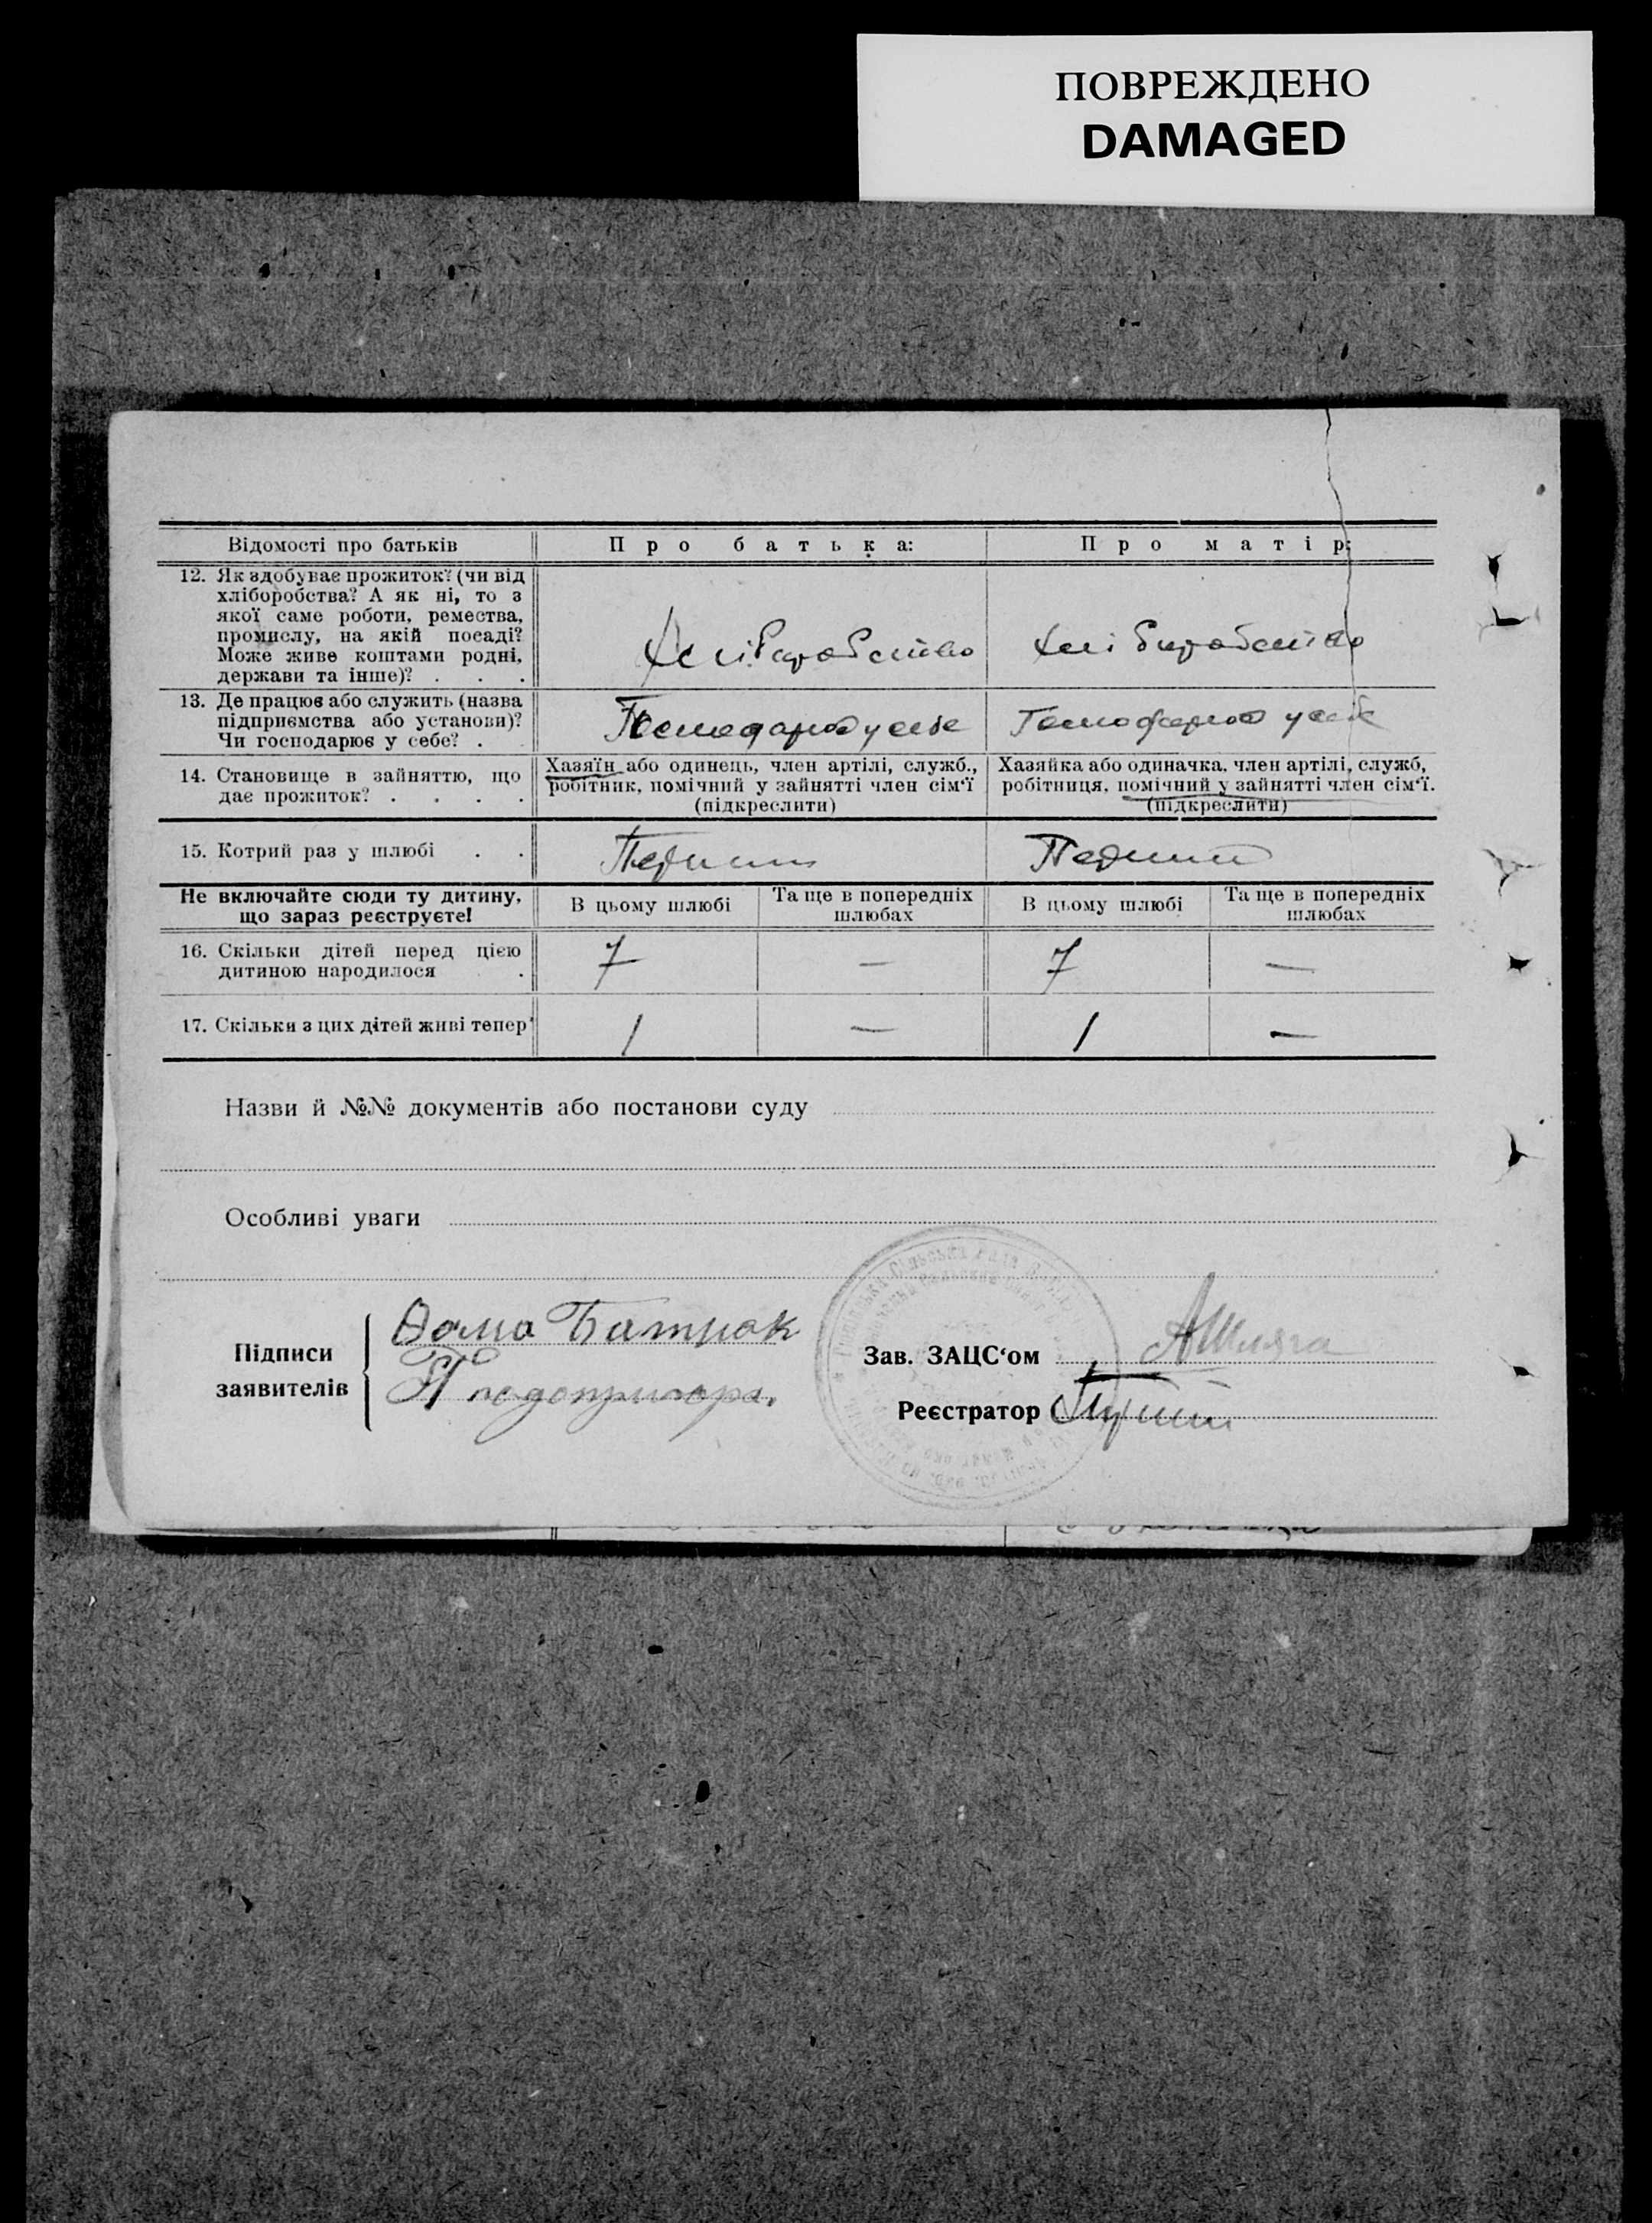 ПОВРЕЖДЕНО
DAMAGED
Відомості про батьків
Про батька:
Про матір:
12. Як здобуває прожиток? (чи від
хліборобства? А як ні, то з
якої саме роботи, ремества,
промислу, на якій посаді?
Може живе коштами родні,
держави та інше)? . . .
Хліборобство
Хліборобство
13. Де працює або служить (назва
підприємства або установи)?
Чи господарює у себе? .
Господарює у себе
Господарює у себе
14. Становище в зайняттю, що
дає прожиток? . . . .
Хазяїн або одинець, член артілі, служб.,
робітник, помічний у зайнятті член сім'ї
(підкреслити)
Хазяйка або одиначка, член артілі, служб,
робітниця, помічний у зайнятті член сім'ї.
(підкреслити)
15. Котрий раз у шлюбі . .
Перший
Перший
Не включайте сюди ту дитину,
що зараз реєструєте!
В цьому шлюбі
Та ще в попередніх
шлюбах
В цьому шлюбі
Та ще в попередніх
шлюбах
16. Скільки дітей перед цією
дитиною народилося .
7 — 7 —
17. Скільки з цих дітей живі тепер
1 — 1 —
Назви й №№ документів або постанови суду
Особливі уваги
Підписи
заявителів
Хома Батрак
Подопригора.
Зав. ЗАЦС'ом АШляга
Реєстратор